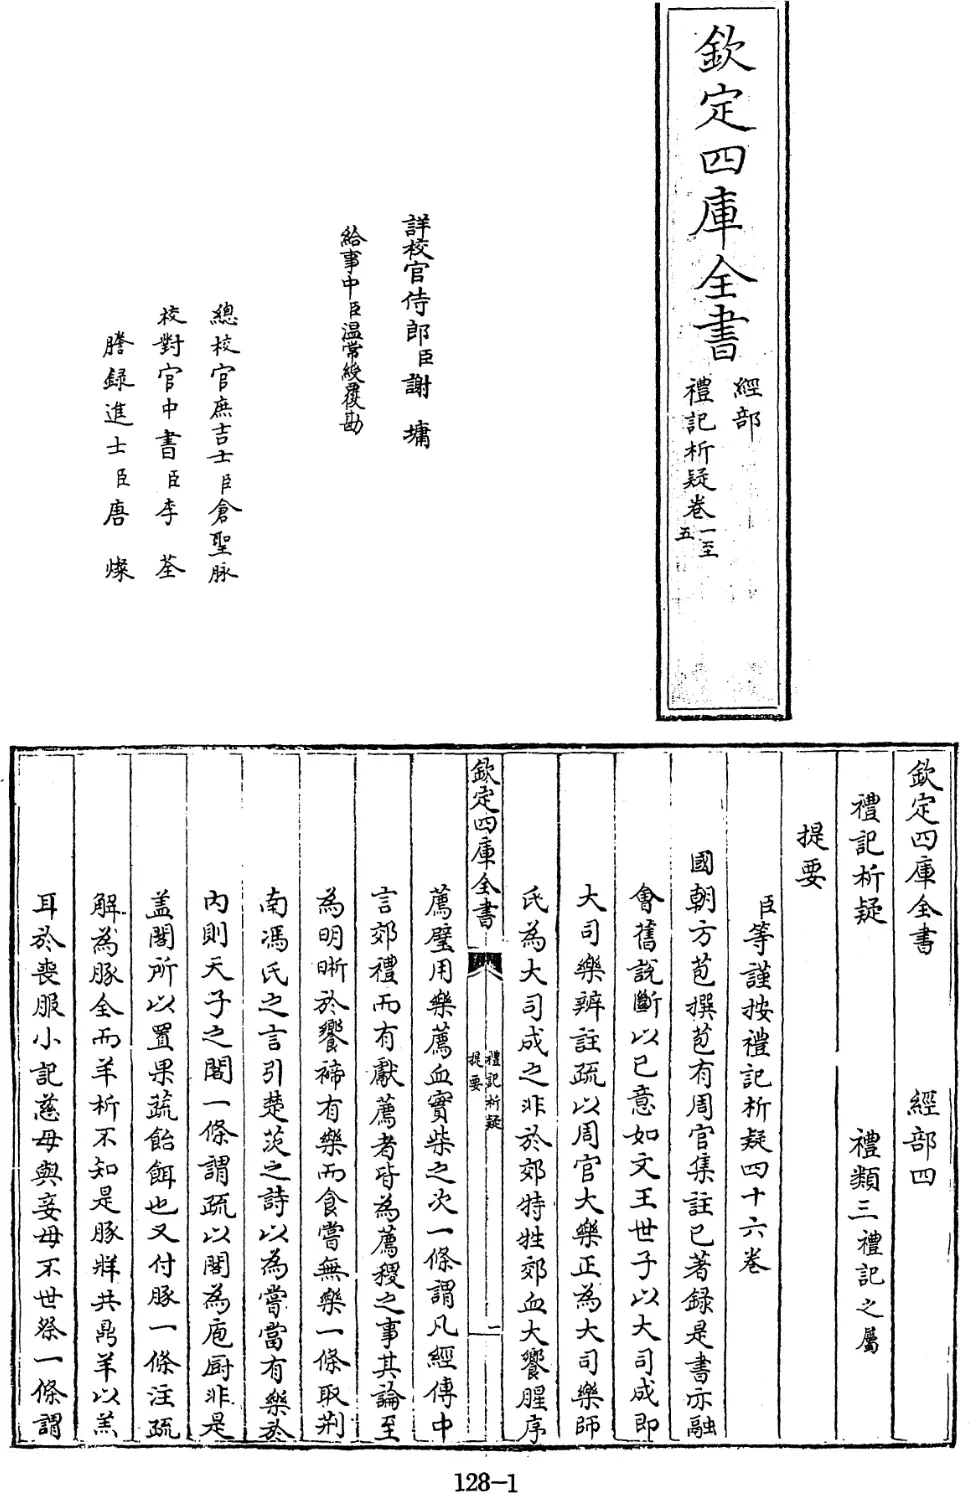 欽定四庫全書
經部
禮記析疑卷一至
五
詳校官侍郎臣謝墉
給事中臣温常綬覆勘
總校官庶吉士臣倉聖脉
校對官中書臣李荃
謄録進士臣唐燦
欽定四庫全書 經部四
禮記析疑 禮類三禮記之屬
提要
臣等謹按禮記析疑四十六巻
國朝方苞撰苞有周官集註已著録是書亦融
會舊說斷以己意如文王世子以大司成即
大司樂辨註疏以周官大樂正為大司樂師
氏為大司成之非於郊特牲郊血大饗腥序
薦璧用樂薦血實柴之次一條謂凡經傳中
言郊禮而有獻薦者皆為薦稷之事其論至
為明晰於饗禘有樂而食嘗無樂一條取荆
南馮氏之言引楚茨之詩以為嘗當有樂於
内則天子之閣一條謂疏以閣為庖厨非是
盖閣所以置果蔬飴餌也又付豚一條注疏
解為豚全而羊析不知是豚牂共鼎羊以羔
耳於喪服小記慈母與妾母不世祭一條謂
欽定四庫全書
禮記析疑
提要
一
128-1